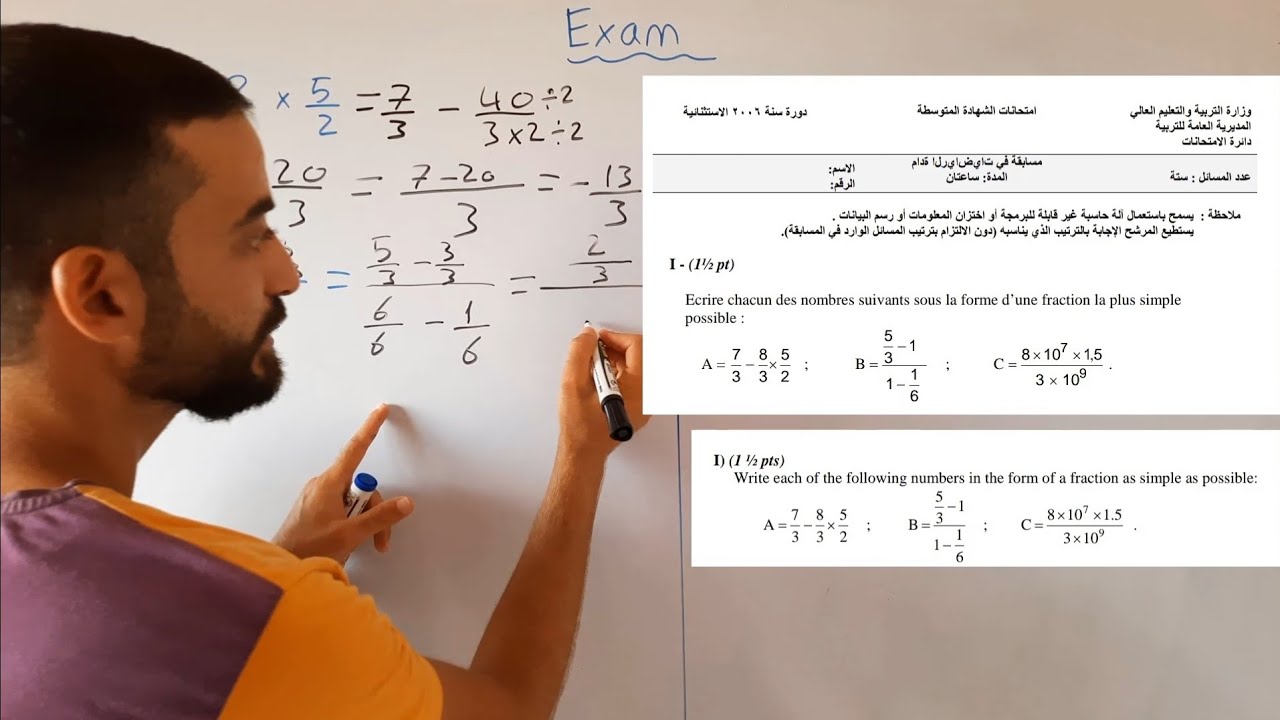 Exam
× 5/2 = 7/3 - 40÷2/3×2÷2
20/3 = 7-20/3 = -13/3
= 5/3 - 3/3 / 6/6 - 1/6 = 2/3
وزارة التربية والتعليم العالي امتحانات الشهادة المتوسطة دورة سنة ٢٠٠٦ الاستثنائية
المديرية العامة للتربية
دائرة الامتحانات
عدد المسائل : ستة مسابقة في تايضايرلا ةدام الاسم:
المدة: ساعتان الرقم:
ملاحظة : يسمح باستعمال آلة حاسبة غير قابلة للبرمجة أو اختزان المعلومات أو رسم البيانات .
يستطيع المرشح الإجابة بالترتيب الذي يناسبه (دون الالتزام بترتيب المسائل الوارد في المسابقة).
I - (1½ pt)
Ecrire chacun des nombres suivants sous la forme d’une fraction la plus simple
possible :
A = 7/3 - 8/3 × 5/2 ; B = (5/3 - 1)/(1 - 1/6) ; C = (8 × 10⁷ × 1,5)/(3 × 10⁹) .
I) (1 ½ pts)
Write each of the following numbers in the form of a fraction as simple as possible:
A = 7/3 - 8/3 × 5/2 ; B = (5/3 - 1)/(1 - 1/6) ; C = (8×10⁷ ×1.5)/(3×10⁹) .